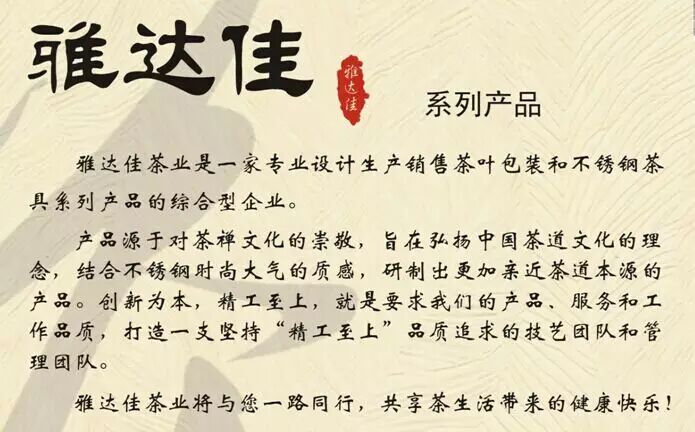 雅达佳
雅达佳
系列产品
雅达佳茶业是一家专业设计生产销售茶叶包装和不锈钢茶
具系列产品的综合型企业。
产品源于对茶禅文化的崇敬，旨在弘扬中国茶道文化的理
念，结合不锈钢时尚大气的质感，研制出更加亲近茶道本源的
产品。创新为本，精工至上，就是要求我们的产品、服务和工
作品质，打造一支坚持“精工至上”品质追求的技艺团队和管
理团队。
雅达佳茶业将与您一路同行，共享茶生活带来的健康快乐！